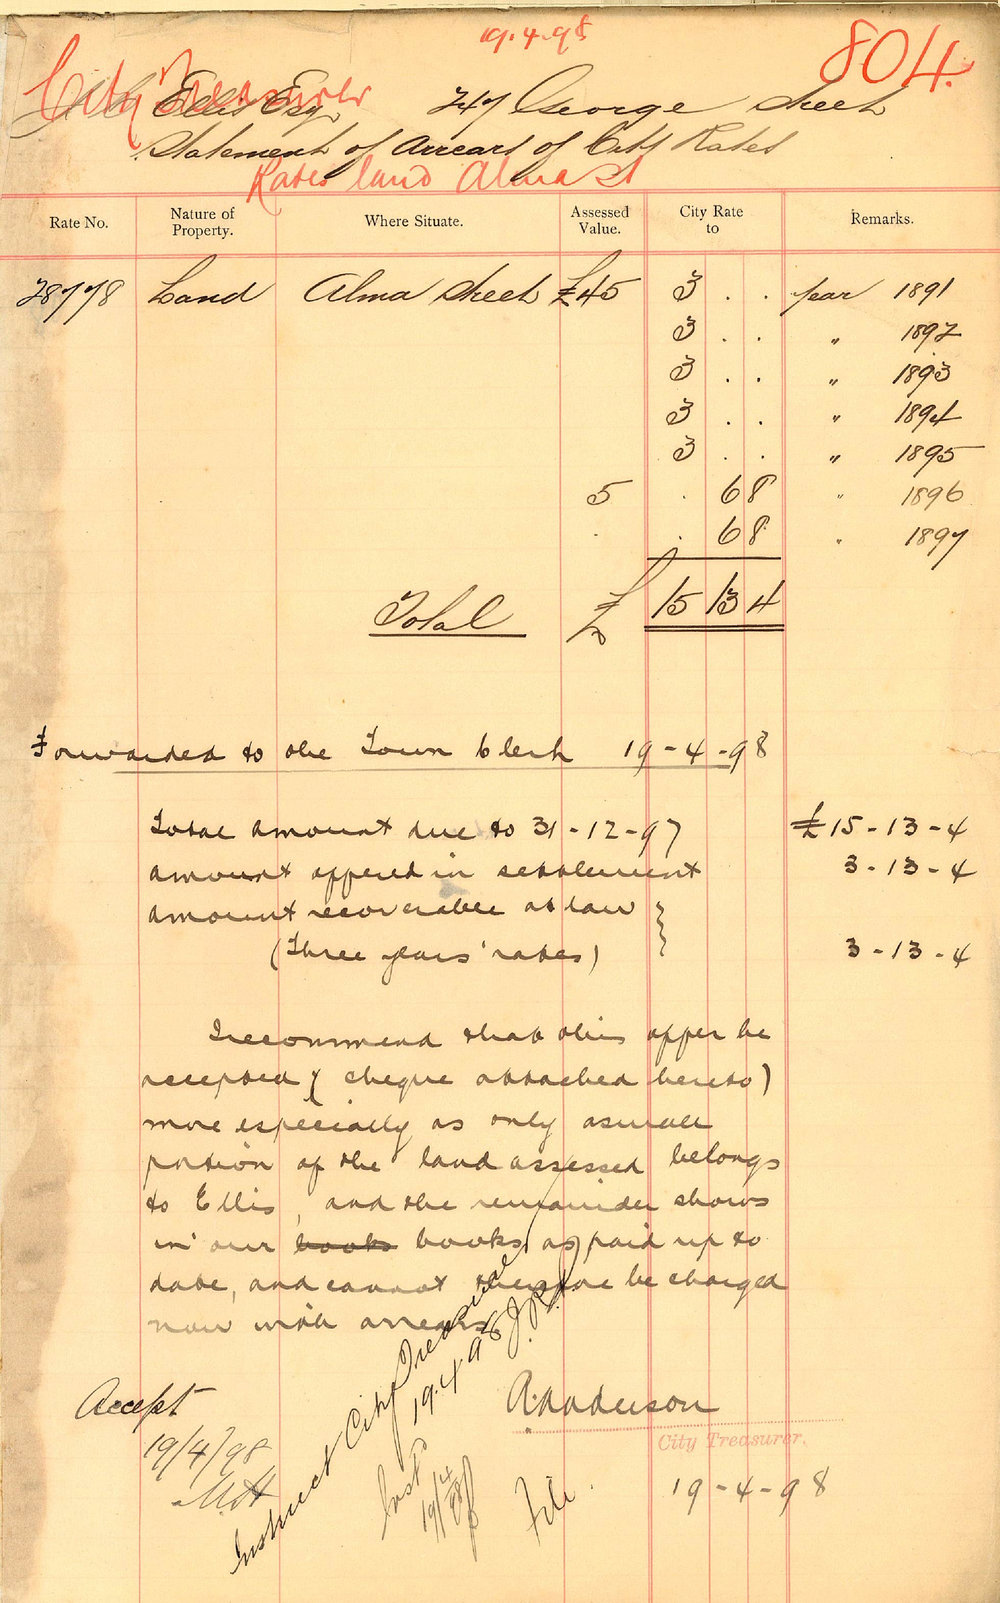 19.4.98
804
City Treasurer
Ellis Esq. 747 George Street
Statement of Arrears of City Rates
Rates land Alma St
Rate No. Nature of Property. Where Situate. Assessed Value. City Rate to Remarks.
Land Alma Street £45 3 . . year 1891
3 . . " 1892
3 . . " 1893
3 . . " 1894
3 . . " 1895
5 . 6 8 " 1896
. . 6 8 " 1897
Total £ 15 13 4
Forwarded to the Town Clerk 19-4-98
Total amount due to 31-12-97 £15-13-4
amount offered in settlement 3-13-4
amount recoverable at law }
(Three years' rates) 3-13-4
I recommend that this offer be
accepted (cheque attached hereto)
more especially as only a small
portion of the land assessed belongs
to Ellis, and the remainder shows
in our books books as paid up to
date, and cannot therefore be charged
now with arrears
Accept
19/4/98
Instruct City Treasurer
19.4.98
City Treasurer.
19-4-98
File.